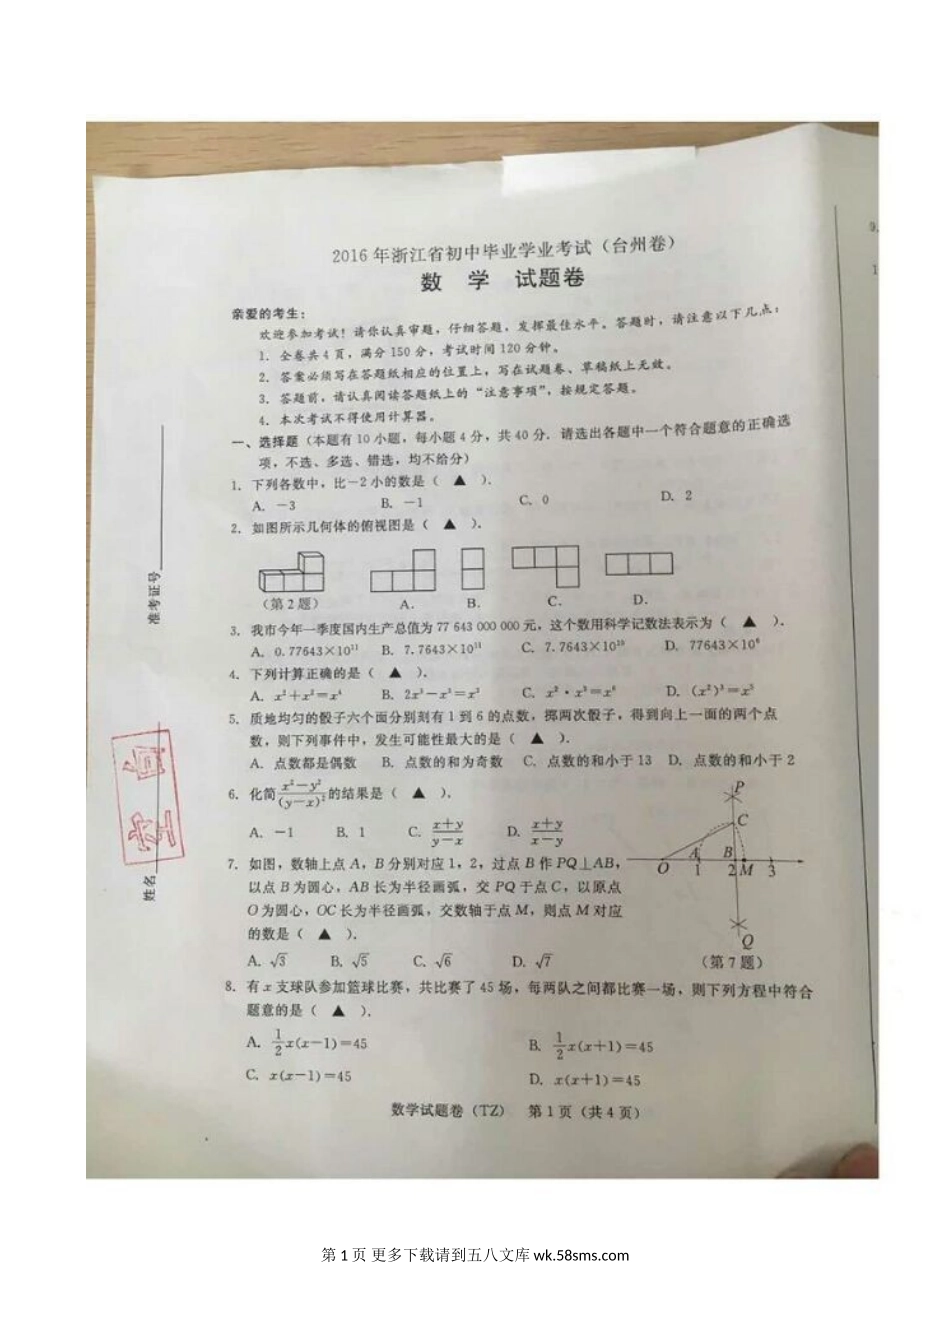 2016年浙江省初中毕业学业考试（台州卷）
数 学 试题卷
亲爱的考生：
欢迎参加考试！请你认真审题，仔细答题，发挥最佳水平。答题时，请注意以下几点：
1. 全卷共4页，满分150分，考试时间120分钟。
2. 答案必须写在答题纸相应的位置上，写在试题卷、草稿纸上无效。
3. 答题前，请认真阅读答题纸上的“注意事项”，按规定答题。
4. 本次考试不得使用计算器。
一、选择题（本题有10小题，每小题4分，共40分．请选出各题中一个符合题意的正确选
项，不选、多选、错选，均不给分）
1. 下列各数中，比－2小的数是（ ▲ ）．
A. －3 B. －1 C. 0 D. 2
2. 如图所示几何体的俯视图是（ ▲ ）．
（第2题） A. B. C. D.
3. 我市今年一季度国内生产总值为77 643 000 000元，这个数用科学记数法表示为（ ▲ ）．
A. 0.77643×10¹¹ B. 7.7643×10¹¹ C. 7.7643×10¹⁰ D. 77643×10⁶
4. 下列计算正确的是（ ▲ ）．
A. x²＋x²＝x⁴ B. 2x³－x³＝x³ C. x²・x³＝x⁶ D. (x²)³＝x⁵
5. 质地均匀的骰子六个面分别刻有1到6的点数，掷两次骰子，得到向上一面的两个点
数，则下列事件中，发生可能性最大的是（ ▲ ）．
A. 点数都是偶数 B. 点数的和为奇数 C. 点数的和小于13 D. 点数的和小于2
6. 化简 (x²－y²)/(y－x)² 的结果是（ ▲ ）．
A. －1 B. 1 C. (x＋y)/(y－x) D. (x＋y)/(x－y)
7. 如图，数轴上点A，B分别对应1，2，过点B作PQ⊥AB，
以点B为圆心，AB长为半径画弧，交PQ于点C，以原点
O为圆心，OC长为半径画弧，交数轴于点M，则点M对应
的数是（ ▲ ）．
A. √3 B. √5 C. √6 D. √7
P
C
A B
O 1 2 M 3
Q
（第7题）
8. 有x支球队参加篮球比赛，共比赛了45场，每两队之间都比赛一场，则下列方程中符合
题意的是（ ▲ ）．
A. ½x(x－1)＝45 B. ½x(x＋1)＝45
C. x(x－1)＝45 D. x(x＋1)＝45
数学试题卷（TZ） 第1页（共4页）
准考证号
姓名
9.
1
第 1 页 更多下载请到五八文库 wk.58sms.com